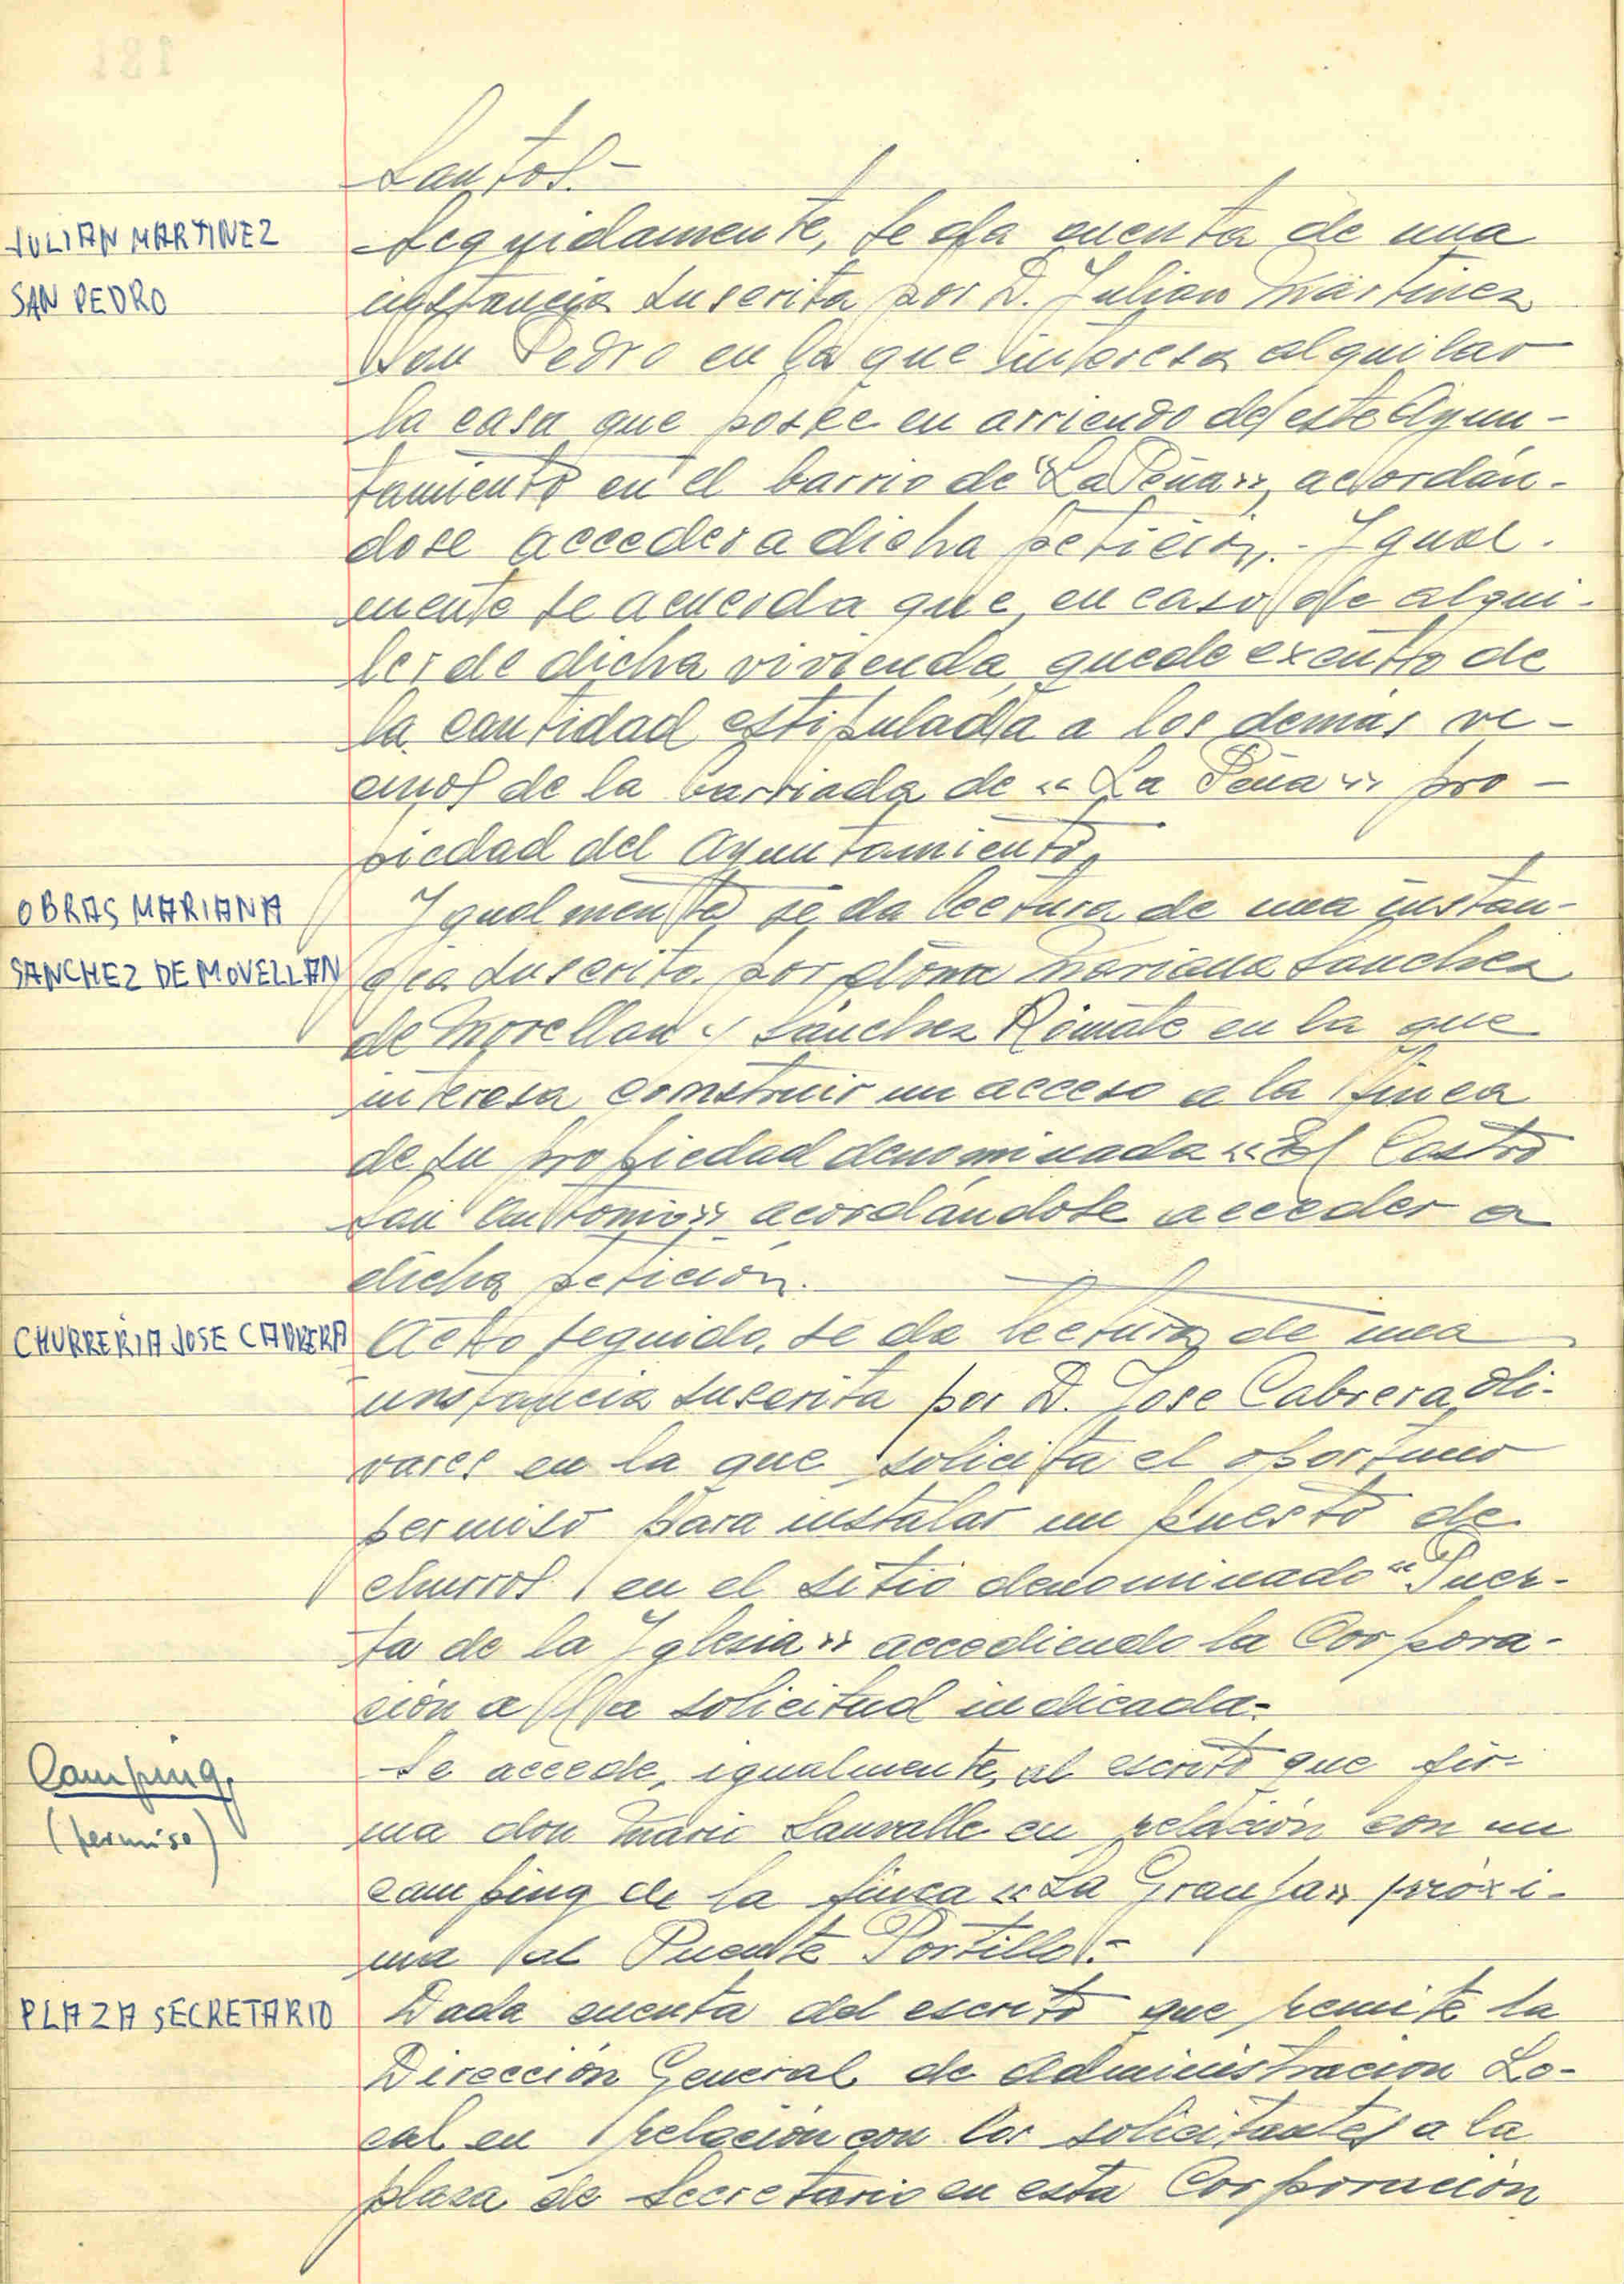 Santos.-
JULIAN MARTINEZ
SAN PEDRO
Seguidamente, se da cuenta de una
instancia suscrita por D. Julian Martinez
San Pedro en la que interesa alquilar
la casa que posee en arriendo de este Ayun-
tamiento en el barrio de "La Peña", acordán-
dose acceder a dicha petición.- Igual-
mente se acuerda que, en caso de alqui-
ler de dicha vivienda, quede exento de
la cantidad estipulada a los demás ve-
cinos de la barriada de "La Peña" pro-
piedad del Ayuntamiento.
OBRAS MARIANA
SANCHEZ DE MOVELLAN
Igualmente se da lectura de una instan-
cia suscrita por doña Mariana Sanchez
de Movellan y Sánchez Romate en la que
interesa construir un acceso a la finca
de su propiedad denominada "El Castro
San Antonio", acordándose acceder a
dicha petición.
CHURRERIA JOSE CABRERA
Acto seguido, se da lectura de una
instancia suscrita por D. Jose Cabrera Oli-
vares en la que solicita el oportuno
permiso para instalar un puesto de
churros en el sitio denominado "Puer-
ta de la Iglesia" accediendo la Corpora-
ción a la solicitud indicada.-
Camping,
(permiso)
Se accede, igualmente, al escrito que fir-
ma don Mario Sauvalle en relación con un
camping de la finca "La Granja" próxi-
ma al Puente Portillo.-
PLAZA SECRETARIO
Dada cuenta del escrito que remite la
Dirección General de Administración Lo-
cal en relación con los solicitantes a la
plaza de Secretario en esta Corporación